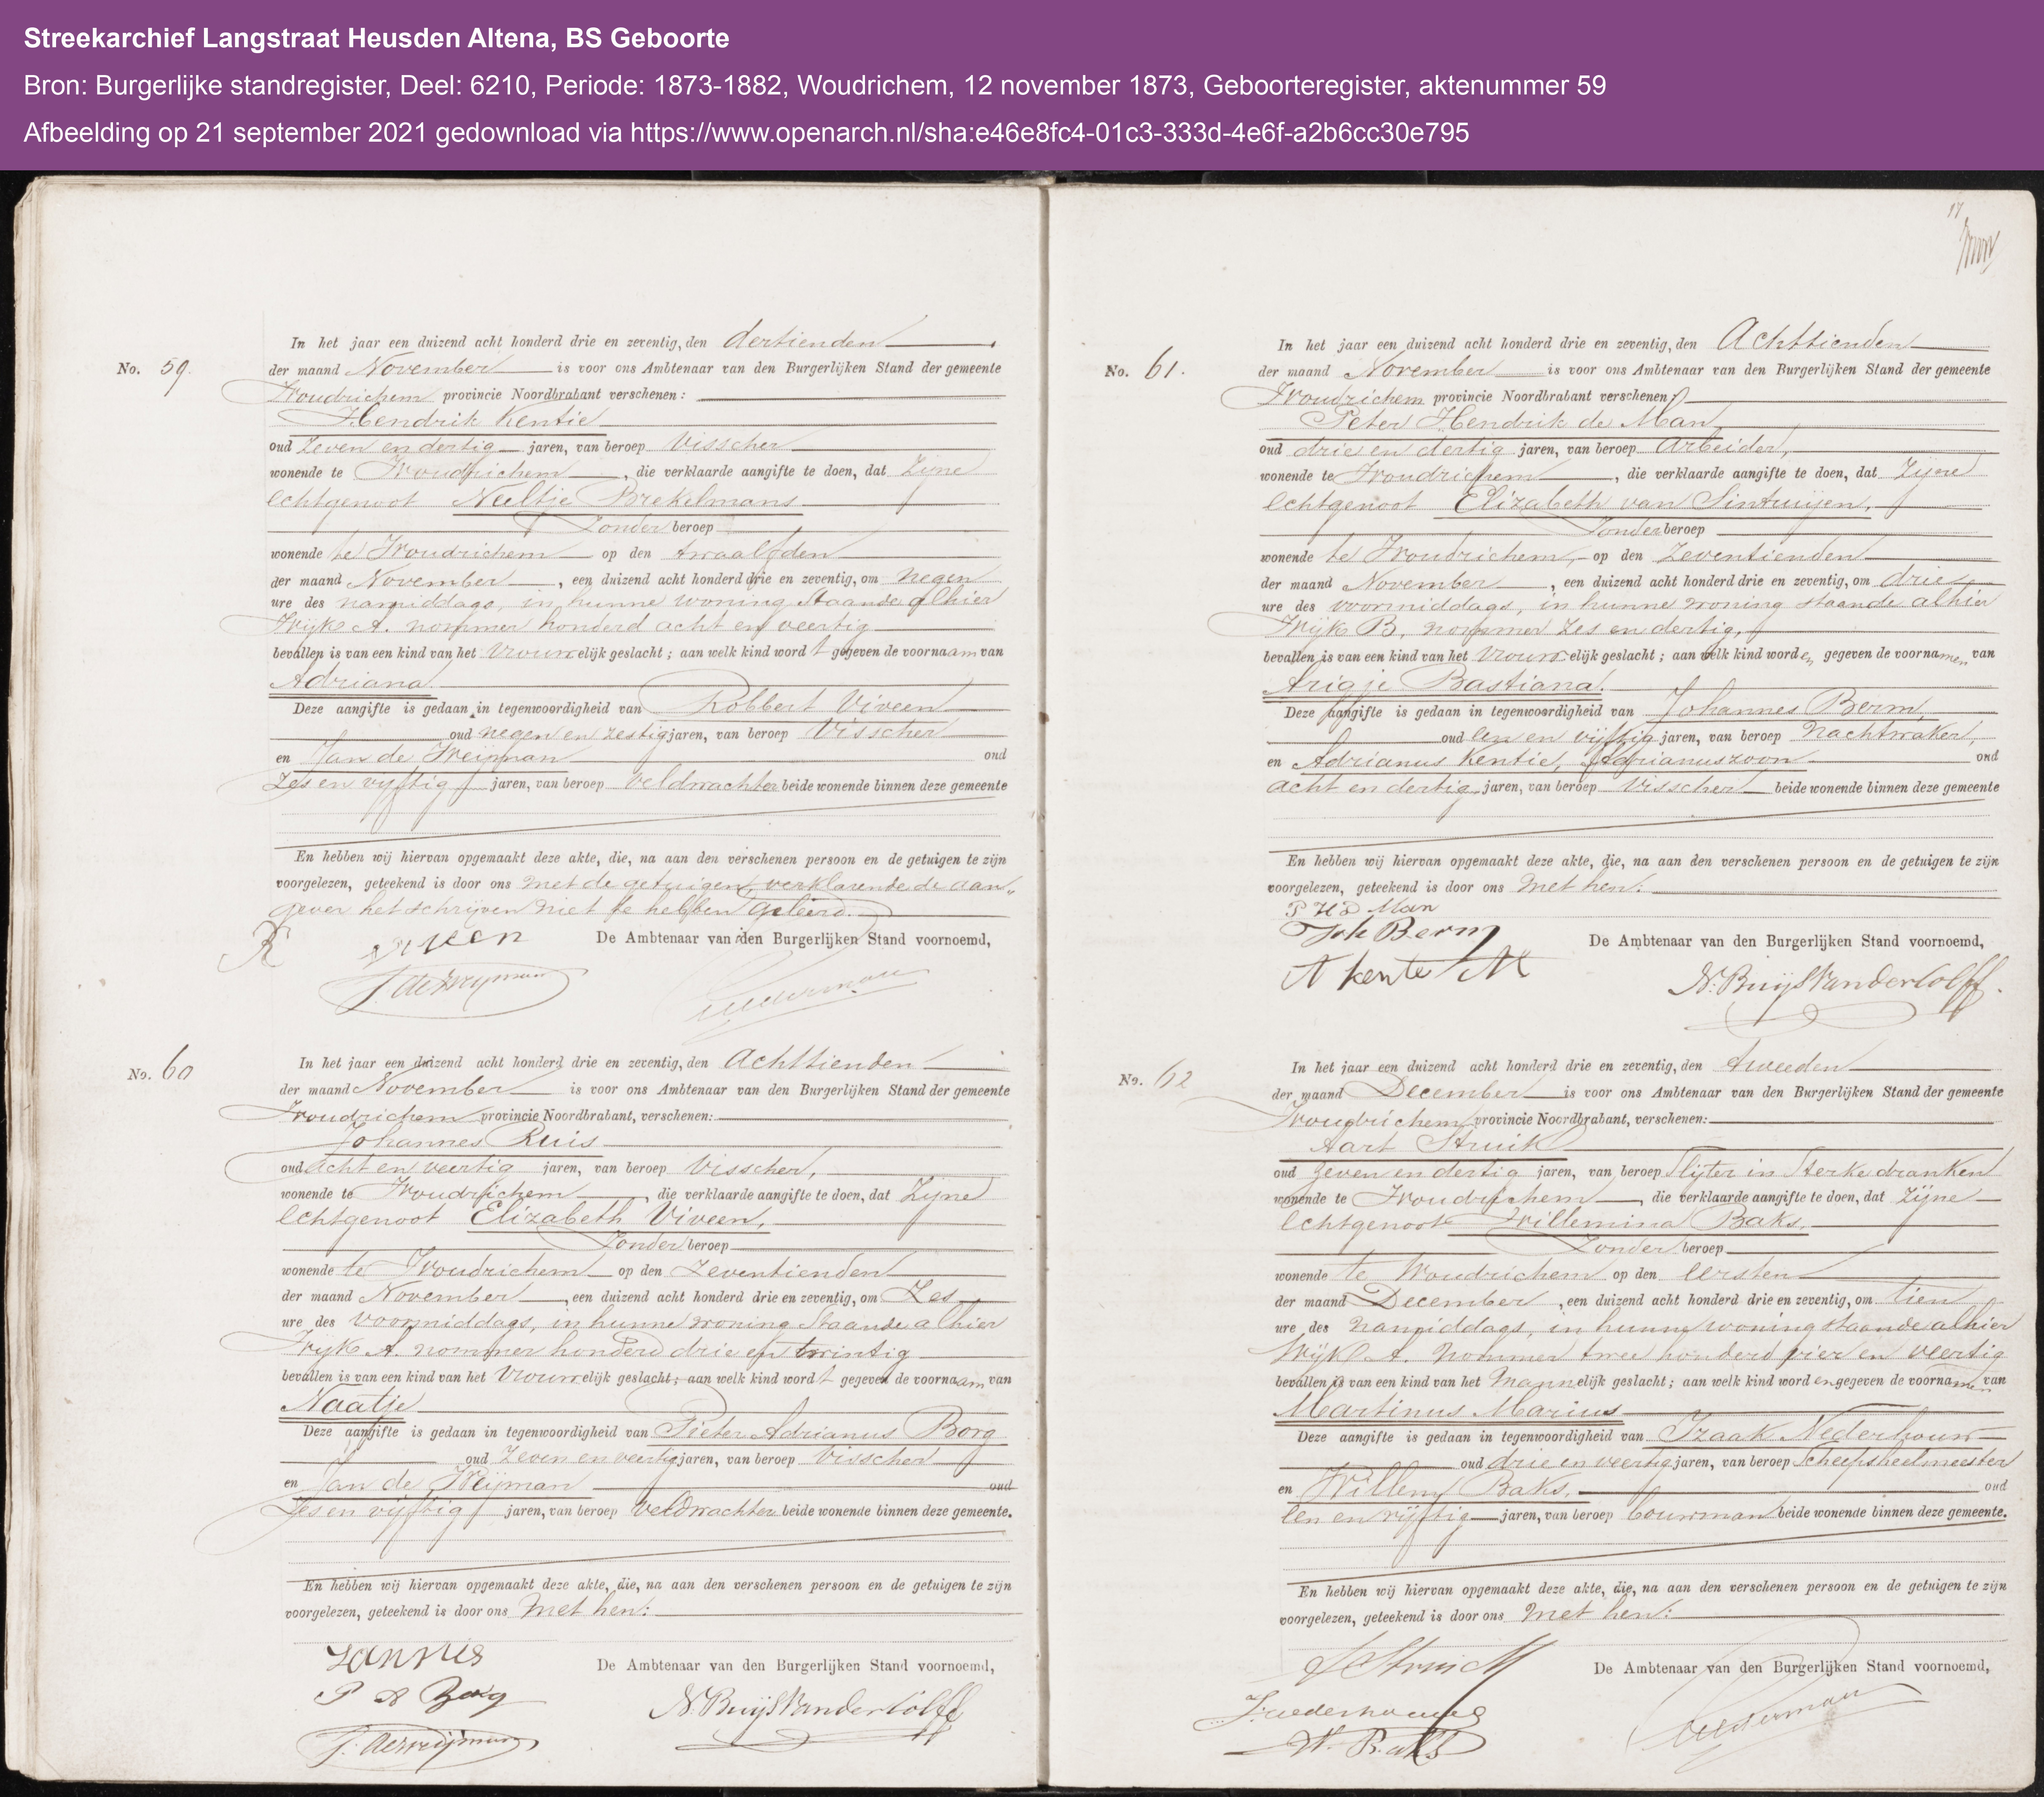 Streekarchief Langstraat Heusden Altena, BS Geboorte
Bron: Burgerlijke standregister, Deel: 6210, Periode: 1873-1882, Woudrichem, 12 november 1873, Geboorteregister, aktenummer 59
Afbeelding op 21 september 2021 gedownload via https://www.openarch.nl/sha:e46e8fc4-01c3-333d-4e6f-a2b6cc30e795
No. 59.
In het jaar een duizend acht honderd drie en zeventig, den dertienden
der maand November is voor ons Ambtenaar van den Burgerlijken Stand der gemeente
Woudrichem provincie Noordbrabant verschenen:
Hendrik Kentie
oud zeven en dertig jaren, van beroep Visscher
wonende te Woudrichem, die verklaarde aangifte te doen, dat Zijne
Echtgenoot Neeltje Brekelmans
Zonder beroep
wonende te Woudrichem op den twaalfden
der maand November, een duizend acht honderd drie en zeventig, om negen
ure des namiddags, in hunne woning staande alhier
Wijk A. nommer honderd acht en veertig
bevallen is van een kind van het Vrouwelijk geslacht; aan welk kind wordt gegeven de voornaam van
Adriana.
Deze aangifte is gedaan in tegenwoordigheid van Robbert Viveen
oud negen en zestig jaren, van beroep Visscher
en Jan de Weijman oud
Zes en vyftig jaren, van beroep veldwachter beide wonende binnen deze gemeente
En hebben wij hiervan opgemaakt deze akte, die, na aan den verschenen persoon en de getuigen te zijn
voorgelezen, geteekend is door ons met de getuigen, verklarende de aan"
gever het schrijven niet te hebben geleerd.
R viveen
De Ambtenaar van den Burgerlijken Stand voornoemd,
J de Weyman
No. 60
In het jaar een duizend acht honderd drie en zeventig, den Achttienden
der maand November is voor ons Ambtenaar van den Burgerlijken Stand der gemeente
Woudrichem provincie Noordbrabant, verschenen:
Johannes Ruis
oud acht en veertig jaren, van beroep Visscher,
wonende te Woudrichem, die verklaarde aangifte te doen, dat Zijne
Echtgenoot Elizabeth Viveen,
Zonder beroep
wonende te Woudrichem op den Zeventienden
der maand November, een duizend acht honderd drie en zeventig, om Zes
ure des voormiddags, in hunne woning Staande alhier
Wijk A. nommer honderd drie en twintig
bevallen is van een kind van het Vrouwelijk geslacht; aan welk kind wordt gegeven de voornaam van
Naatje
Deze aangifte is gedaan in tegenwoordigheid van Pieter Adrianus Borg
oud Zeven en veertig jaren, van beroep Visscher
en Jan de Weijman oud
Zes en vijftig jaren, van beroep Veldwachter beide wonende binnen deze gemeente.
En hebben wij hiervan opgemaakt deze akte, die, na aan den verschenen persoon en de getuigen te zijn
voorgelezen, geteekend is door ons met hen:
P A Borg
De Ambtenaar van den Burgerlijken Stand voornoemd,
N. Buijs Van der Colff
J. de Weijman
17
No. 61.
In het jaar een duizend acht honderd drie en zeventig, den Achttienden
der maand November is voor ons Ambtenaar van den Burgerlijken Stand der gemeente
Woudrichem provincie Noordbrabant verschenen:
Peter Hendrik de Man
oud drie en dertig jaren, van beroep Arbeider,
wonende te Woudrichem, die verklaarde aangifte te doen, dat Zijne
Echtgenoot Elizabeth van Sintuijen,
Zonder beroep
wonende te Woudrichem, op den Zeventienden
der maand November, een duizend acht honderd drie en zeventig, om drie
ure des voormiddags, in hunne woning staande alhier
Wijk B, nommer Zes en dertig,
bevallen is van een kind van het Vrouwelijk geslacht; aan welk kind worden gegeven de voornamen van
Arigje Bastiana.
Deze aangifte is gedaan in tegenwoordigheid van Johannes Berm,
oud een en vijftig jaren, van beroep Nachtwaker,
en Adrianus Kentie, Adrianuszoon oud
acht en dertig jaren, van beroep Visscher beide wonende binnen deze gemeente
En hebben wij hiervan opgemaakt deze akte, die, na aan den verschenen persoon en de getuigen te zijn
voorgelezen, geteekend is door ons met hen:
P H D Man
Joh Berm
De Ambtenaar van den Burgerlijken Stand voornoemd,
N. Buijs Van der Colff
No. 62
In het jaar een duizend acht honderd drie en zeventig, den tweeden
der maand December is voor ons Ambtenaar van den Burgerlijken Stand der gemeente
Woudrichem provincie Noordbrabant, verschenen:
Aart Struik
oud zeven en dertig jaren, van beroep Slijter in Sterke dranken
wonende te Woudrichem, die verklaarde aangifte te doen, dat zijne
Echtgenoot Willemina Baks,
Zonder beroep
wonende te Woudrichem op den eersten
der maand December, een duizend acht honderd drie en zeventig, om tien
ure des namiddags, in hunne woning staande alhier
Wijk A. nommer twee honderd vier en veertig
bevallen is van een kind van het Mannelijk geslacht; aan welk kind worden gegeven de voornamen van
Martinus Marius
Deze aangifte is gedaan in tegenwoordigheid van Izaak Nederhouw
oud drie en veertig jaren, van beroep Scheepsheelmeester
en Willem Baks, oud
een en vijftig jaren, van beroep bouwman beide wonende binnen deze gemeente.
En hebben wij hiervan opgemaakt deze akte, die, na aan den verschenen persoon en de getuigen te zijn
voorgelezen, geteekend is door ons met hen:
A Struik
De Ambtenaar van den Burgerlijken Stand voornoemd,
W. Baks